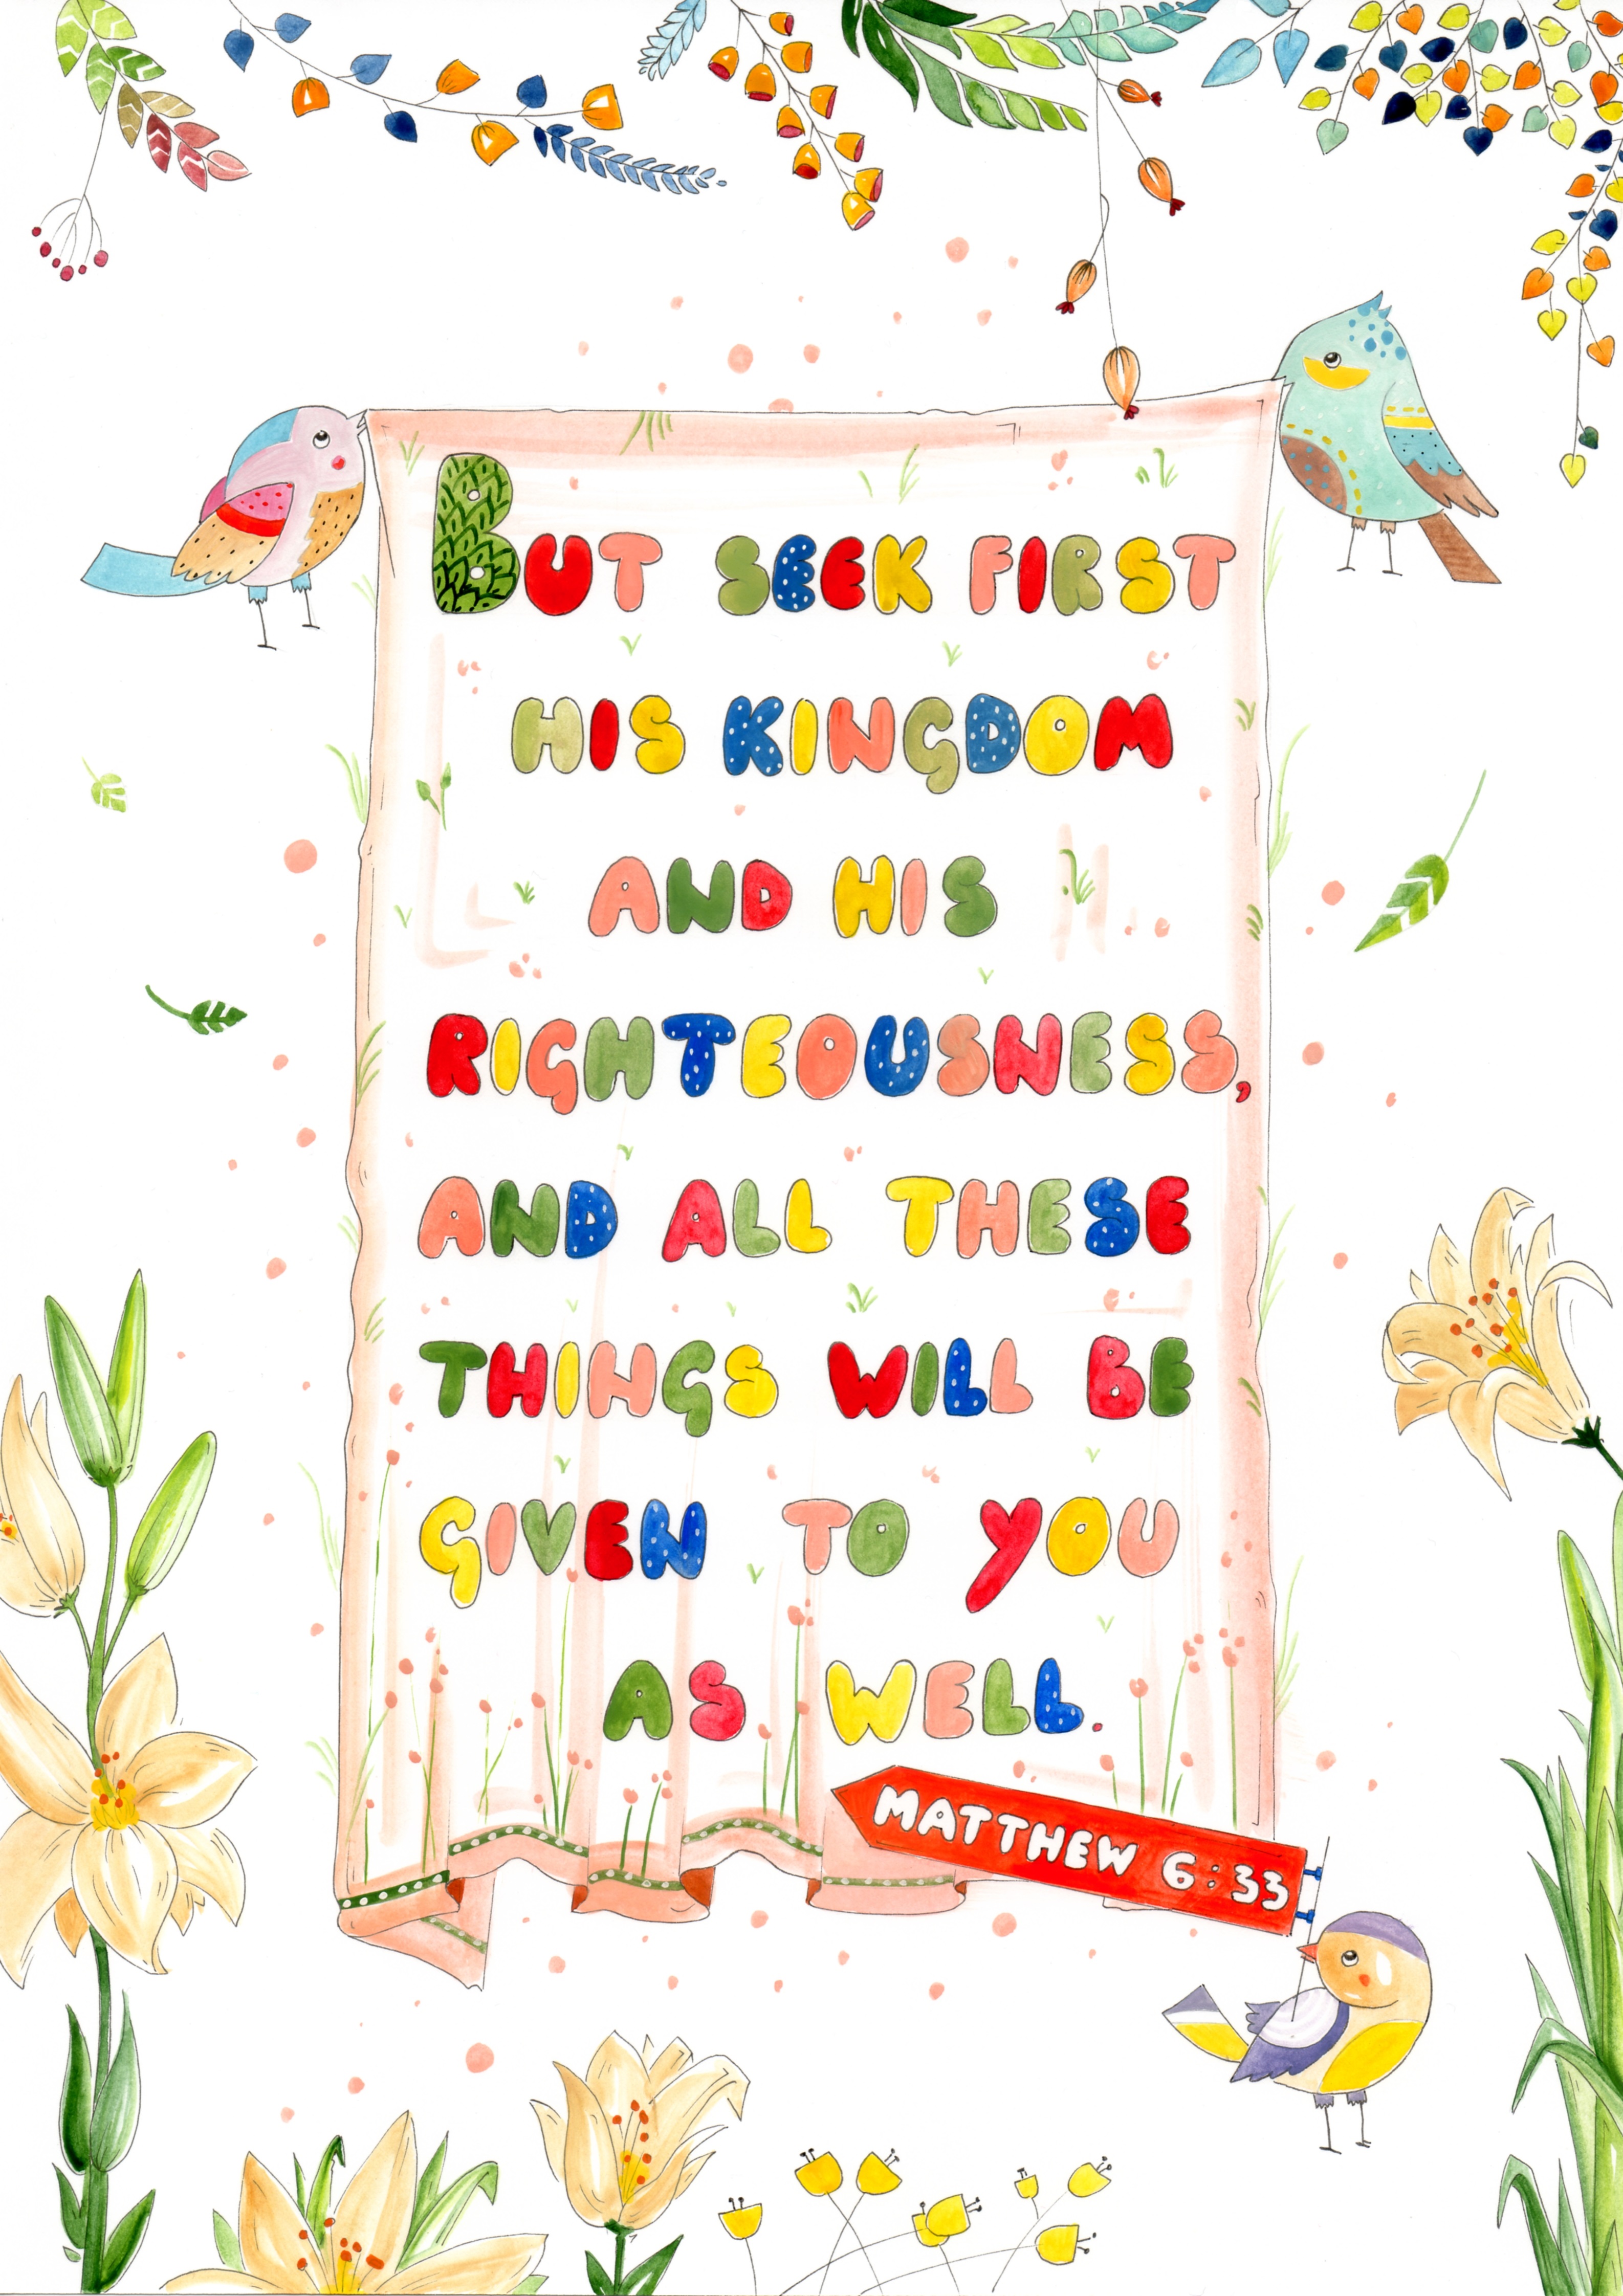 BUT SEEK FIRST
HIS KINGDOM
AND HIS
RIGHTEOUSNESS,
AND ALL THESE
THINGS WILL BE
GIVEN TO YOU
AS WELL.
MATTHEW 6:33